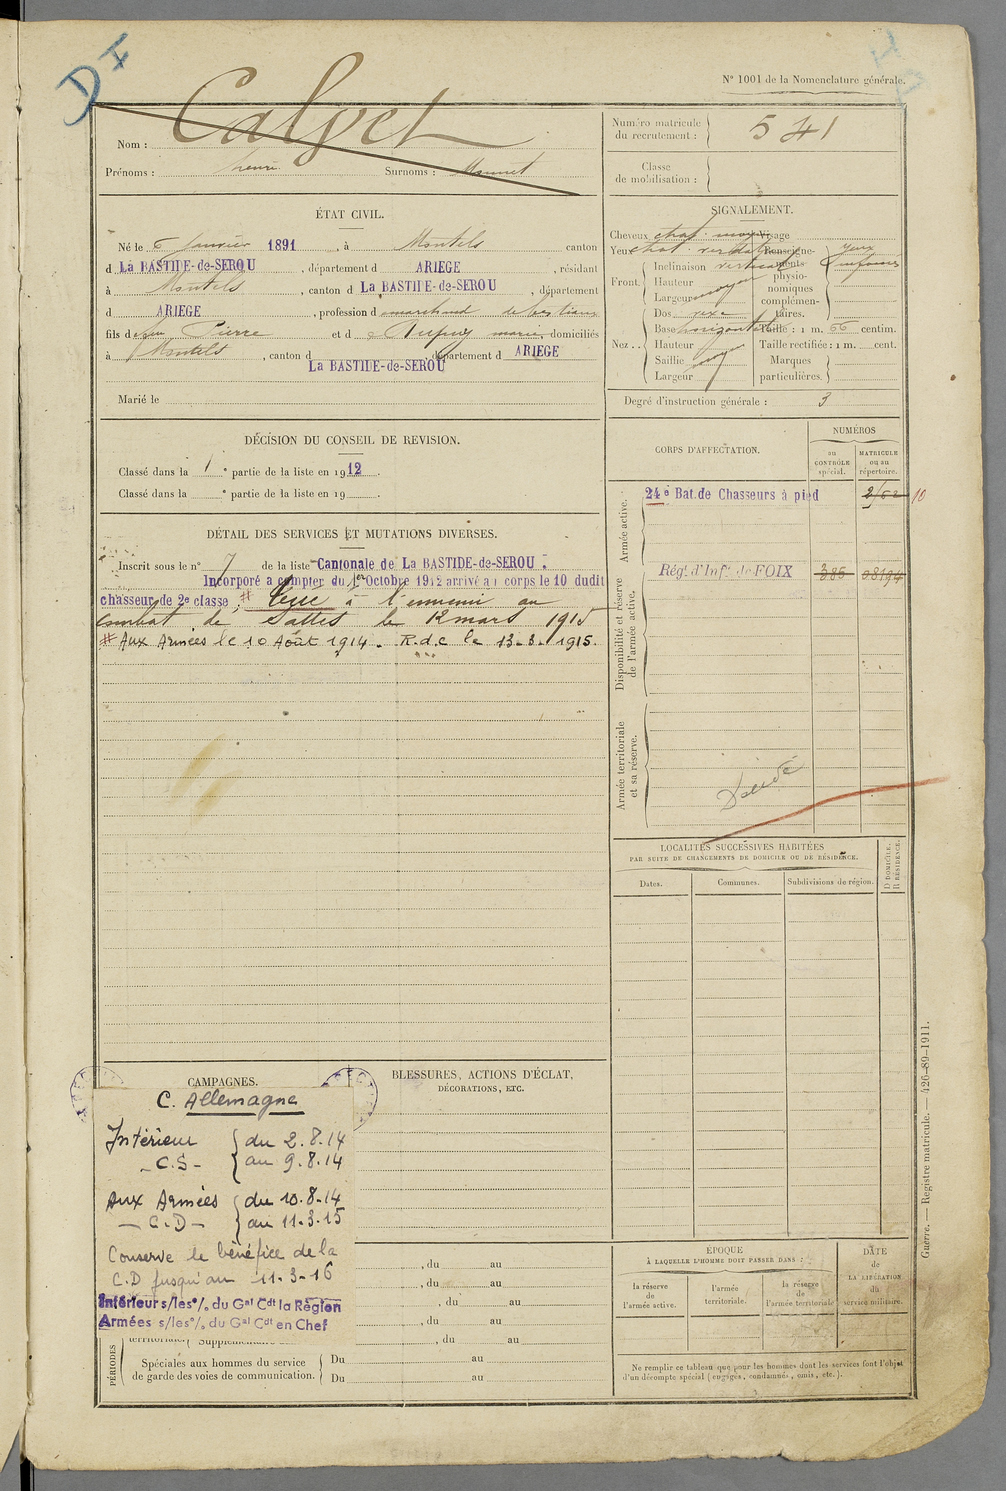 DI
N° 1001 de la Nomenclature générale.
Nom : Calvet
Prénoms : henri Surnoms :
Numéro matricule du recrutement : 541
Classe de mobilisation :
ÉTAT CIVIL.
Né le 6 Janvier 1891, à Montels canton
d La BASTIDE-de-SEROU, département d ARIEGE, résidant
à Montels, canton d La BASTIDE-de-SEROU, département
d ARIEGE, profession d marchand de bestiaux
fils de feu Pierre et d e Dupuy marie, domiciliés
à Montels, canton d La BASTIDE-de-SEROU, département d ARIEGE
Marié le
SIGNALEMENT.
Cheveux chat. moyen Visage
Yeux chat. verdatre
Renseignements physionomiques complémentaires. yeux
Front. Inclinaison vertical
Hauteur
Largeur moyen
Nez.. Dos rexe
Base horizontale
Hauteur
Saillie moyen
Largeur
Taille : 1 m. 66 centim.
Taille rectifiée : 1 m. cent.
Marques particulières.
Degré d'instruction générale : 3
DÉCISION DU CONSEIL DE REVISION.
Classé dans la 1e partie de la liste en 1912.
Classé dans la e partie de la liste en 19 .
DÉTAIL DES SERVICES ET MUTATIONS DIVERSES.
Inscrit sous le n° 7 de la liste Cantonale de La BASTIDE-de-SEROU.
Incorporé a compter du 1er Octobre 1912 arrivé au corps le 10 dudit
chasseur de 2e classe. # Tué à l'ennemi au
combat de Sattes le 12 mars 1915
# Aux Armées le 10 Août 1914. R.d.c le 13-3-1915.
CORPS D'AFFECTATION.
NUMÉROS
au CONTRÔLE spécial.
MATRICULE ou au répertoire.
Armée active.
24e Bat. de Chasseurs à pied 10
Disponibilité et réserve de l'armée active.
Régt. d'Infie. de FOIX 385 08194
Armée territoriale et sa réserve.
Décédé
LOCALITÉS SUCCESSIVES HABITÉES
PAR SUITE DE CHANGEMENTS DE DOMICILE OU DE RÉSIDENCE.
Dates. Communes. Subdivisions de région.
D DOMICILE.
R RÉSIDENCE.
CAMPAGNES.
C. Allemagne
Intérieur du 2.8.14
- C.S - au 9.8.14
Aux Armées du 10.8.14
- C.D - au 11-3-15
Conserve le bénéfice de la
C.D jusqu'au 11-3-16
Intérieur s/les °/. du Gal Cdt la Région
Armées s/les °/. du Gal Cdt en Chef
BLESSURES, ACTIONS D'ÉCLAT,
DÉCORATIONS, ETC.
, du au
, du au
, du au
, du au
territoriale. Supplémentaire , du au
PÉRIODES
Spéciales aux hommes du service
de garde des voies de communication.
Du au
Du au
ÉPOQUE
À LAQUELLE L'HOMME DOIT PASSER DANS :
la réserve de l'armée active.
l'armée territoriale.
la réserve de l'armée territoriale
DATE de LA LIBÉRATION du service militaire.
Ne remplir ce tableau que pour les hommes dont les services font l'objet
d'un décompte spécial (engagés, condamnés, omis, etc.).
Guerre. — Registre matricule. — 426-89-1911.